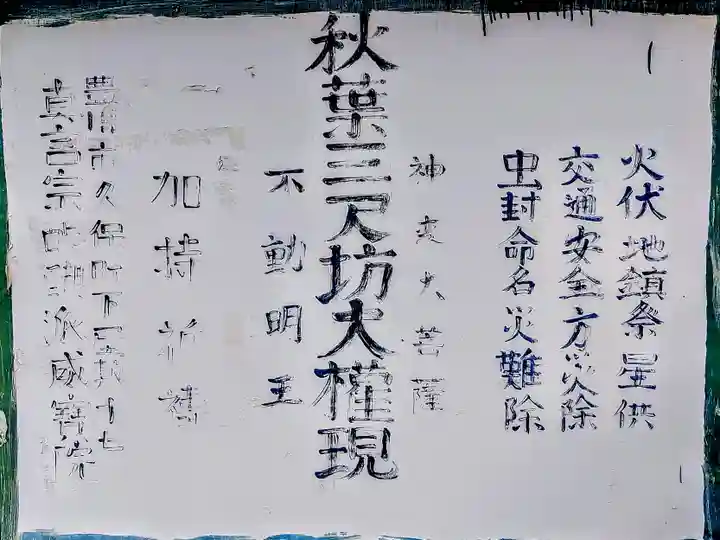 火伏地鎮祭星供
交通安全方災除
虫封命名災難除
神変大菩薩
秋葉三尺坊大權現
不動明王
加持祈禱
豊川市久保町下
真言宗醍醐派威寳院